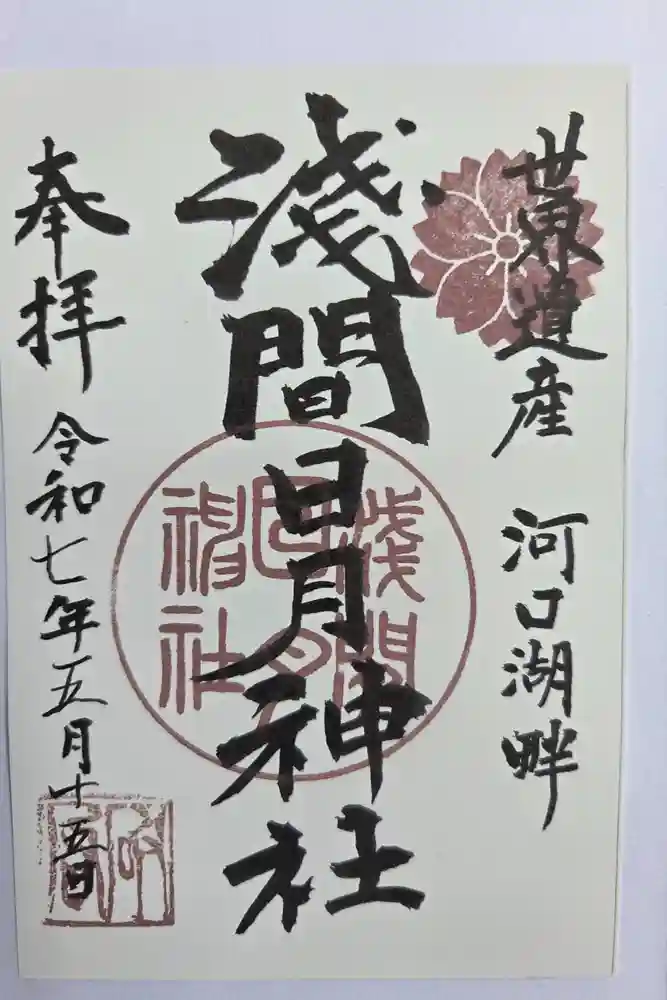 世界遺産 河口湖畔
淺間日月神社
淺間
日月
神社
奉拝
令和七年五月十五日